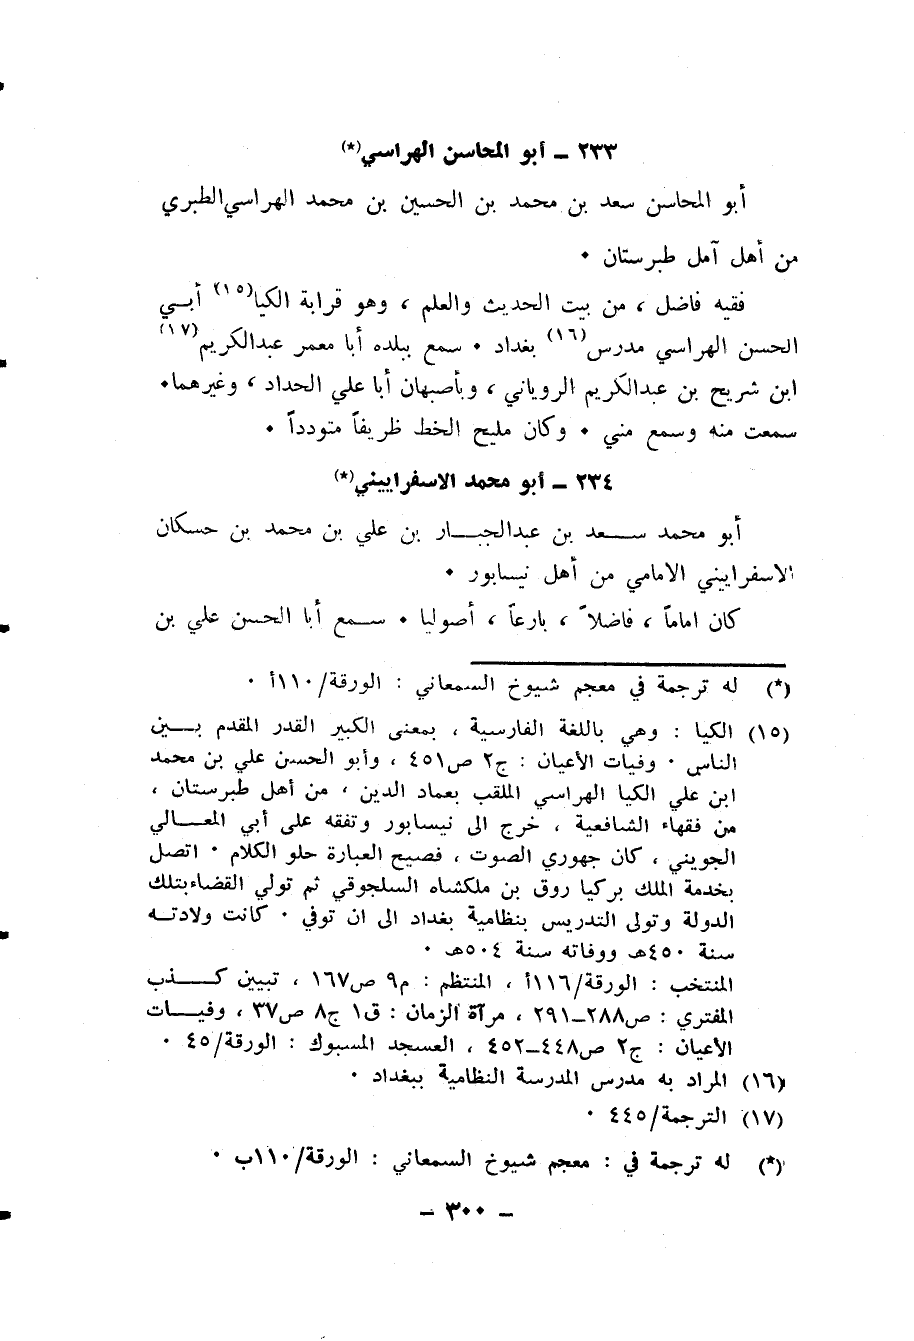 ٢٣٣ ــ أبو المحاسن الهراسي(*)
أبو المحاسن سعد بن محمد بن الحسين بن محمد الهراسي الطبري
من أهل آمل طبرستان ٠
فقيه فاضل ، من بيت الحديث والعلم ، وهو قرابة الكيا(١٥) أبــي
الحسن الهراسي مدرس(١٦) بغداد ٠ سمع ببلده أبا معمر عبدالكريم(١٧)
ابن شريح بن عبدالكريم الروياني ، وبأصبهان أبا علي الحداد ، وغيرهما٠
سمعت منه وسمع مني ٠ وكان مليح الخط ظريفاً متودداً ٠
٢٣٤ ــ أبو محمد الاسفراييني(*)
أبو محمد ســعد بن عبدالجبــار بن علي بن محمد بن حسكان
الاسفراييني الامامي من أهل نيسابور ٠
كان اماماً ، فاضلاً ، بارعاً ، أصوليا ٠ ســمع أبا الحسن علي بن
(*) له ترجمة في معجم شيوخ السمعاني : الورقة/١١٠أ ٠
(١٥) الكيا : وهي باللغة الفارسية ، بمعنى الكبير القدر المقدم بــين
الناس ٠ وفيات الأعيان : ج٢ ص٤٥١ ، وأبو الحسن علي بن محمد
ابن علي الكيا الهراسي الملقب بعماد الدين ، من أهل طبرستان ،
من فقهاء الشافعية ، خرج الى نيسابور وتفقه على أبي المعــالي
الجويني ، كان جهوري الصوت ، فصيح العبارة حلو الكلام ٠ اتصل
بخدمة الملك بركيا روق بن ملكشاه السلجوقي ثم تولي القضاء بتلك
الدولة وتولى التدريس بنظامية بغداد الى ان توفي ٠ كانت ولادتــه
سنة ٤٥٠هـ ووفاته سنة ٥٠٤هـ ٠
المنتخب : الورقة/١١٦أ ، المنتظم : م٩ ص١٦٧ ، تبيين كــذب
المفتري : ص٢٨٨ــ٢٩١ ، مرآة الزمان : ق١ ج٨ ص٣٧ ، وفيــات
الأعيان : ج٢ ص٤٤٨ــ٤٥٢ ، العسجد المسبوك : الورقة/٤٥ ٠
(١٦) المراد به مدرس المدرسة النظامية ببغداد ٠
(١٧) الترجمة/٤٤٥ ٠
(*) له ترجمة في : معجم شيوخ السمعاني : الورقة/١١٠ب ٠
ــ ٣٠٠ ــ